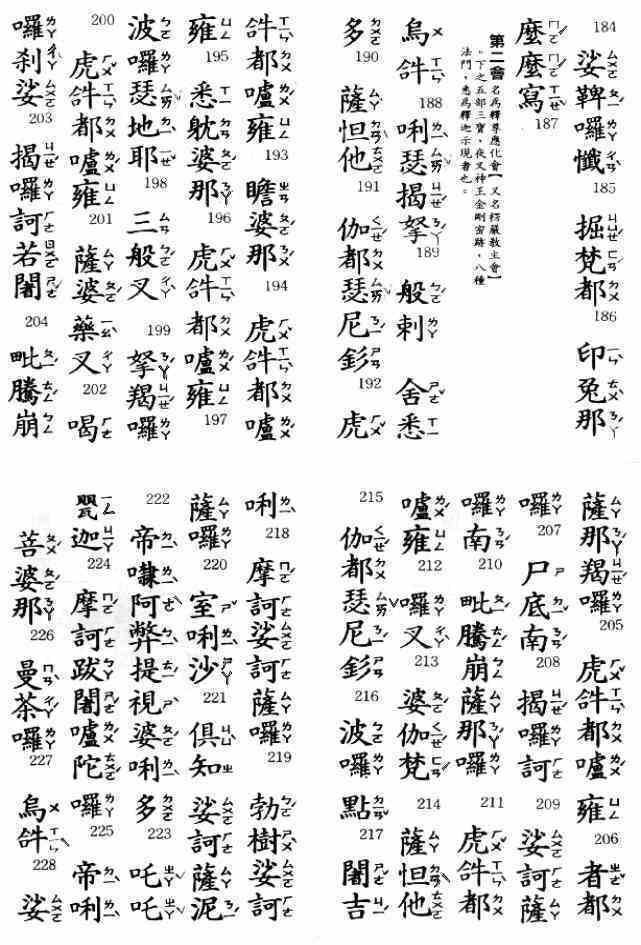 184 娑鞞囉懺 185 掘梵都 186 印兔那
麼麼寫 187
第二會 名為釋尊應化會】又名楞嚴教主會】
。下之五部三寶、夜叉神王金剛密跡、八種
法門、悉為釋迦示現者之。
烏𤙖 188 唎瑟揭拏 189 般剌 舍悉
多 190 薩怛他 191 伽都瑟尼釤 192 虎
𤙖都嚧雍 193 瞻婆那 194 虎𤙖都嚧
雍 195 悉躭婆那 196 虎𤙖都嚧雍 197
波囉瑟地耶 198 三般叉 199 拏羯囉
200 虎𤙖都嚧雍 201 薩婆藥叉 202 喝
囉剎娑 203 揭囉訶若闍 204 毗騰崩
薩那羯囉 205 虎𤙖都嚧雍 206 者都
囉 207 尸底南 208 揭囉訶 209 娑訶薩
囉南 210 毗騰崩薩那囉 211 虎𤙖都
嚧雍 212 囉叉 213 婆伽梵 214 薩怛他
215 伽都瑟尼釤 216 波囉點 217 闍吉
唎 218 摩訶娑訶薩囉 219 勃樹娑訶
薩囉 220 室唎沙 221 俱知娑訶薩泥
222 帝㘑阿弊提視婆唎多 223 吒吒
甖迦 224 摩訶跋闍嚧陀囉 225 帝唎
菩婆那 226 曼茶囉 227 烏𤙖 228 娑